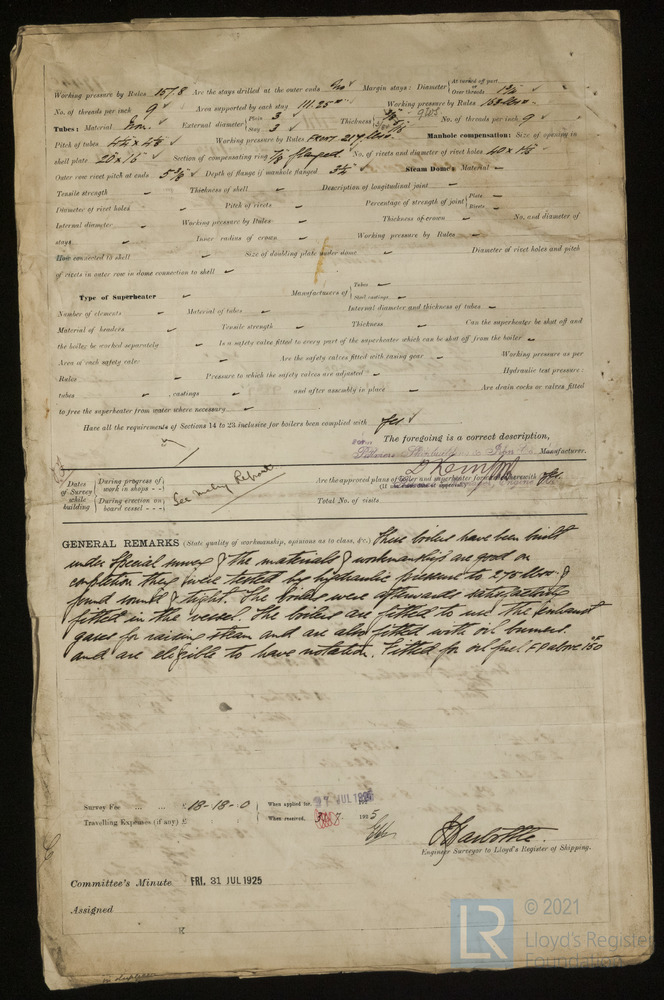 Working pressure by Rules 157.8 Are the stays drilled at the outer ends No Margin stays: Diameter { At turned off part, Over threads 1¾
No. of threads per inch 9 Area supported by each stay 111.25 Working pressure by Rules
Tubes: Material Iron External diameter { Plain 3 Stay 3 Thickness { No. of threads per inch 9
Pitch of tubes Working pressure by Rules Manhole compensation: Size of opening in
shell plate 20 x 15 Section of compensating ring flanged No. of rivets and diameter of rivet holes
Outer row rivet pitch at ends Depth of flange if manhole flanged Steam Dome: Material
Tensile strength Thickness of shell Description of longitudinal joint
Diameter of rivet holes Pitch of rivets Percentage of strength of joint { Plate Rivets
Internal diameter Working pressure by Rules Thickness of crown No. and diameter of
stays Inner radius of crown Working pressure by Rules
How connected to shell Size of doubling plate under dome Diameter of rivet holes and pitch
of rivets in outer row in dome connection to shell
Type of Superheater Manufacturers of { Tubes Steel castings
Number of elements Material of tubes Internal diameter and thickness of tubes
Material of headers Tensile strength Thickness Can the superheater be shut off and
the boiler be worked separately Is a safety valve fitted to every part of the superheater which can be shut off from the boiler
Area of each safety valve Are the safety valves fitted with easing gear Working pressure as per
Rules Pressure to which the safety valves are adjusted Hydraulic test pressure:
tubes , castings and after assembly in place Are drain cocks or valves fitted
to free the superheater from water where necessary
Have all the requirements of Sections 14 to 23 inclusive for boilers been complied with Yes
The foregoing is a correct description,
Manufacturer.
Dates of Survey while building { During progress of work in shops - - During erection on board vessel - - - See Machy Report
Are the approved plans of boiler and superheater forwarded herewith Yes
Total No. of visits
GENERAL REMARKS (State quality of workmanship, opinions as to class, &c.) These boilers have been built
under special survey & the materials & workmanship are good on
completion they were tested by hydraulic pressure to 275 lbs &
found sound & tight. The boilers were afterwards satisfactorily
fitted in the vessel. The boilers are fitted to use the exhaust
gases for raising steam and are also fitted with oil burners.
and are eligible to have notation. Fitted for oil fuel F P above 150
Survey Fee ... ... £ 18-18-0 When applied for,
Travelling Expenses (if any) £ When received, 31.7.1925
Engineer Surveyor to Lloyd's Register of Shipping.
Committee's Minute FRI. 31 JUL 1925
Assigned
LR © 2021
Lloyd's Register
Foundation